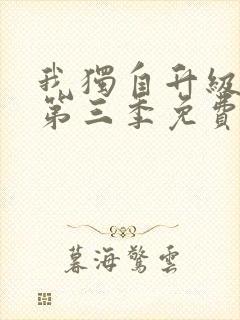 我獨自升級
第三季免費
暮海驚雲